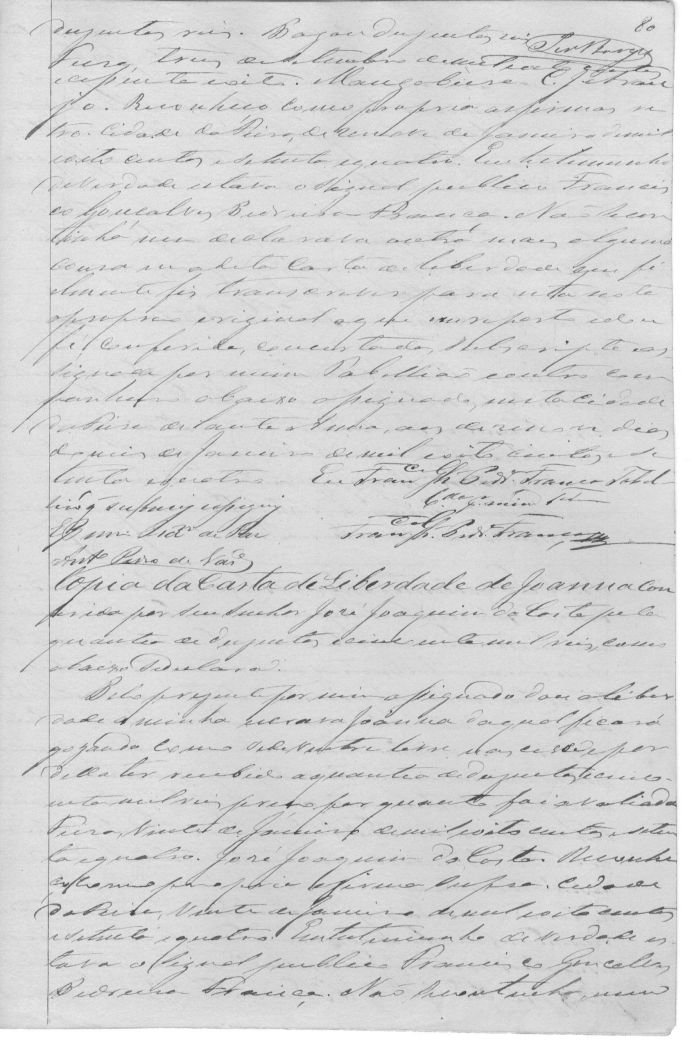 80
dusentos reis. Pagou dusentos reis
Pura, tres de
e cepiente e oito. Mangabeira. C. J. de Arau
jo. Reconheço como propria as firmas re
tro. Cidade da Pura, desenove de Janeiro de mil
oito centos e setenta e quatro. Em testemunho
de verdade estava o signal publico Francis
co Gonçalves Pedreira França. Não se con
tinha nem declarava outra mais alguma
cousa na dita Carta de liberdade que fi
elmente fiz transcrever para esta nota
a propria original a que me reporto e dou
fé, conferida, concertada, subscripta e as
signada por mim Tabellião e outro com
panheiro abaixo assignado, nesta cidade
da Pura de Santo Amaro, aos desenove dias
do mes de Janeiro de mil oito centos e se
tenta e quatro. Eu Franco Glz Pedra França Tabel
lião q subscrevi e assignei
E p mim
Franco Glz Pedra França
Anto
Copia da Carta de Liberdade de Joanna con
ferida por seu senhor José Joaquim da Costa pela
quantia de dusentos e cincoenta mil reis, como
abaixo se declara.
Pelo presente por mim assignado dou a liber
dade a minha escrava Joanna da qual ficará
gozando como se de ventre livre nascesse por
della ter recebido a quantia de dusentos e cinco
enta mil reis, preço por quanto foi avaliada
Pura, Vinte de Janeiro de mil oito centos e seten
ta e quatro. José Joaquim da Costa. Reconhe
ço como propria a firma supra. Cidade
da Pura, Vinte de Janeiro de mil oito centos
e setenta e quatro. Em testemunho de verdade es
tava o signal publico Francisco Gonçalves
Pedreira França. Não se continha, nem